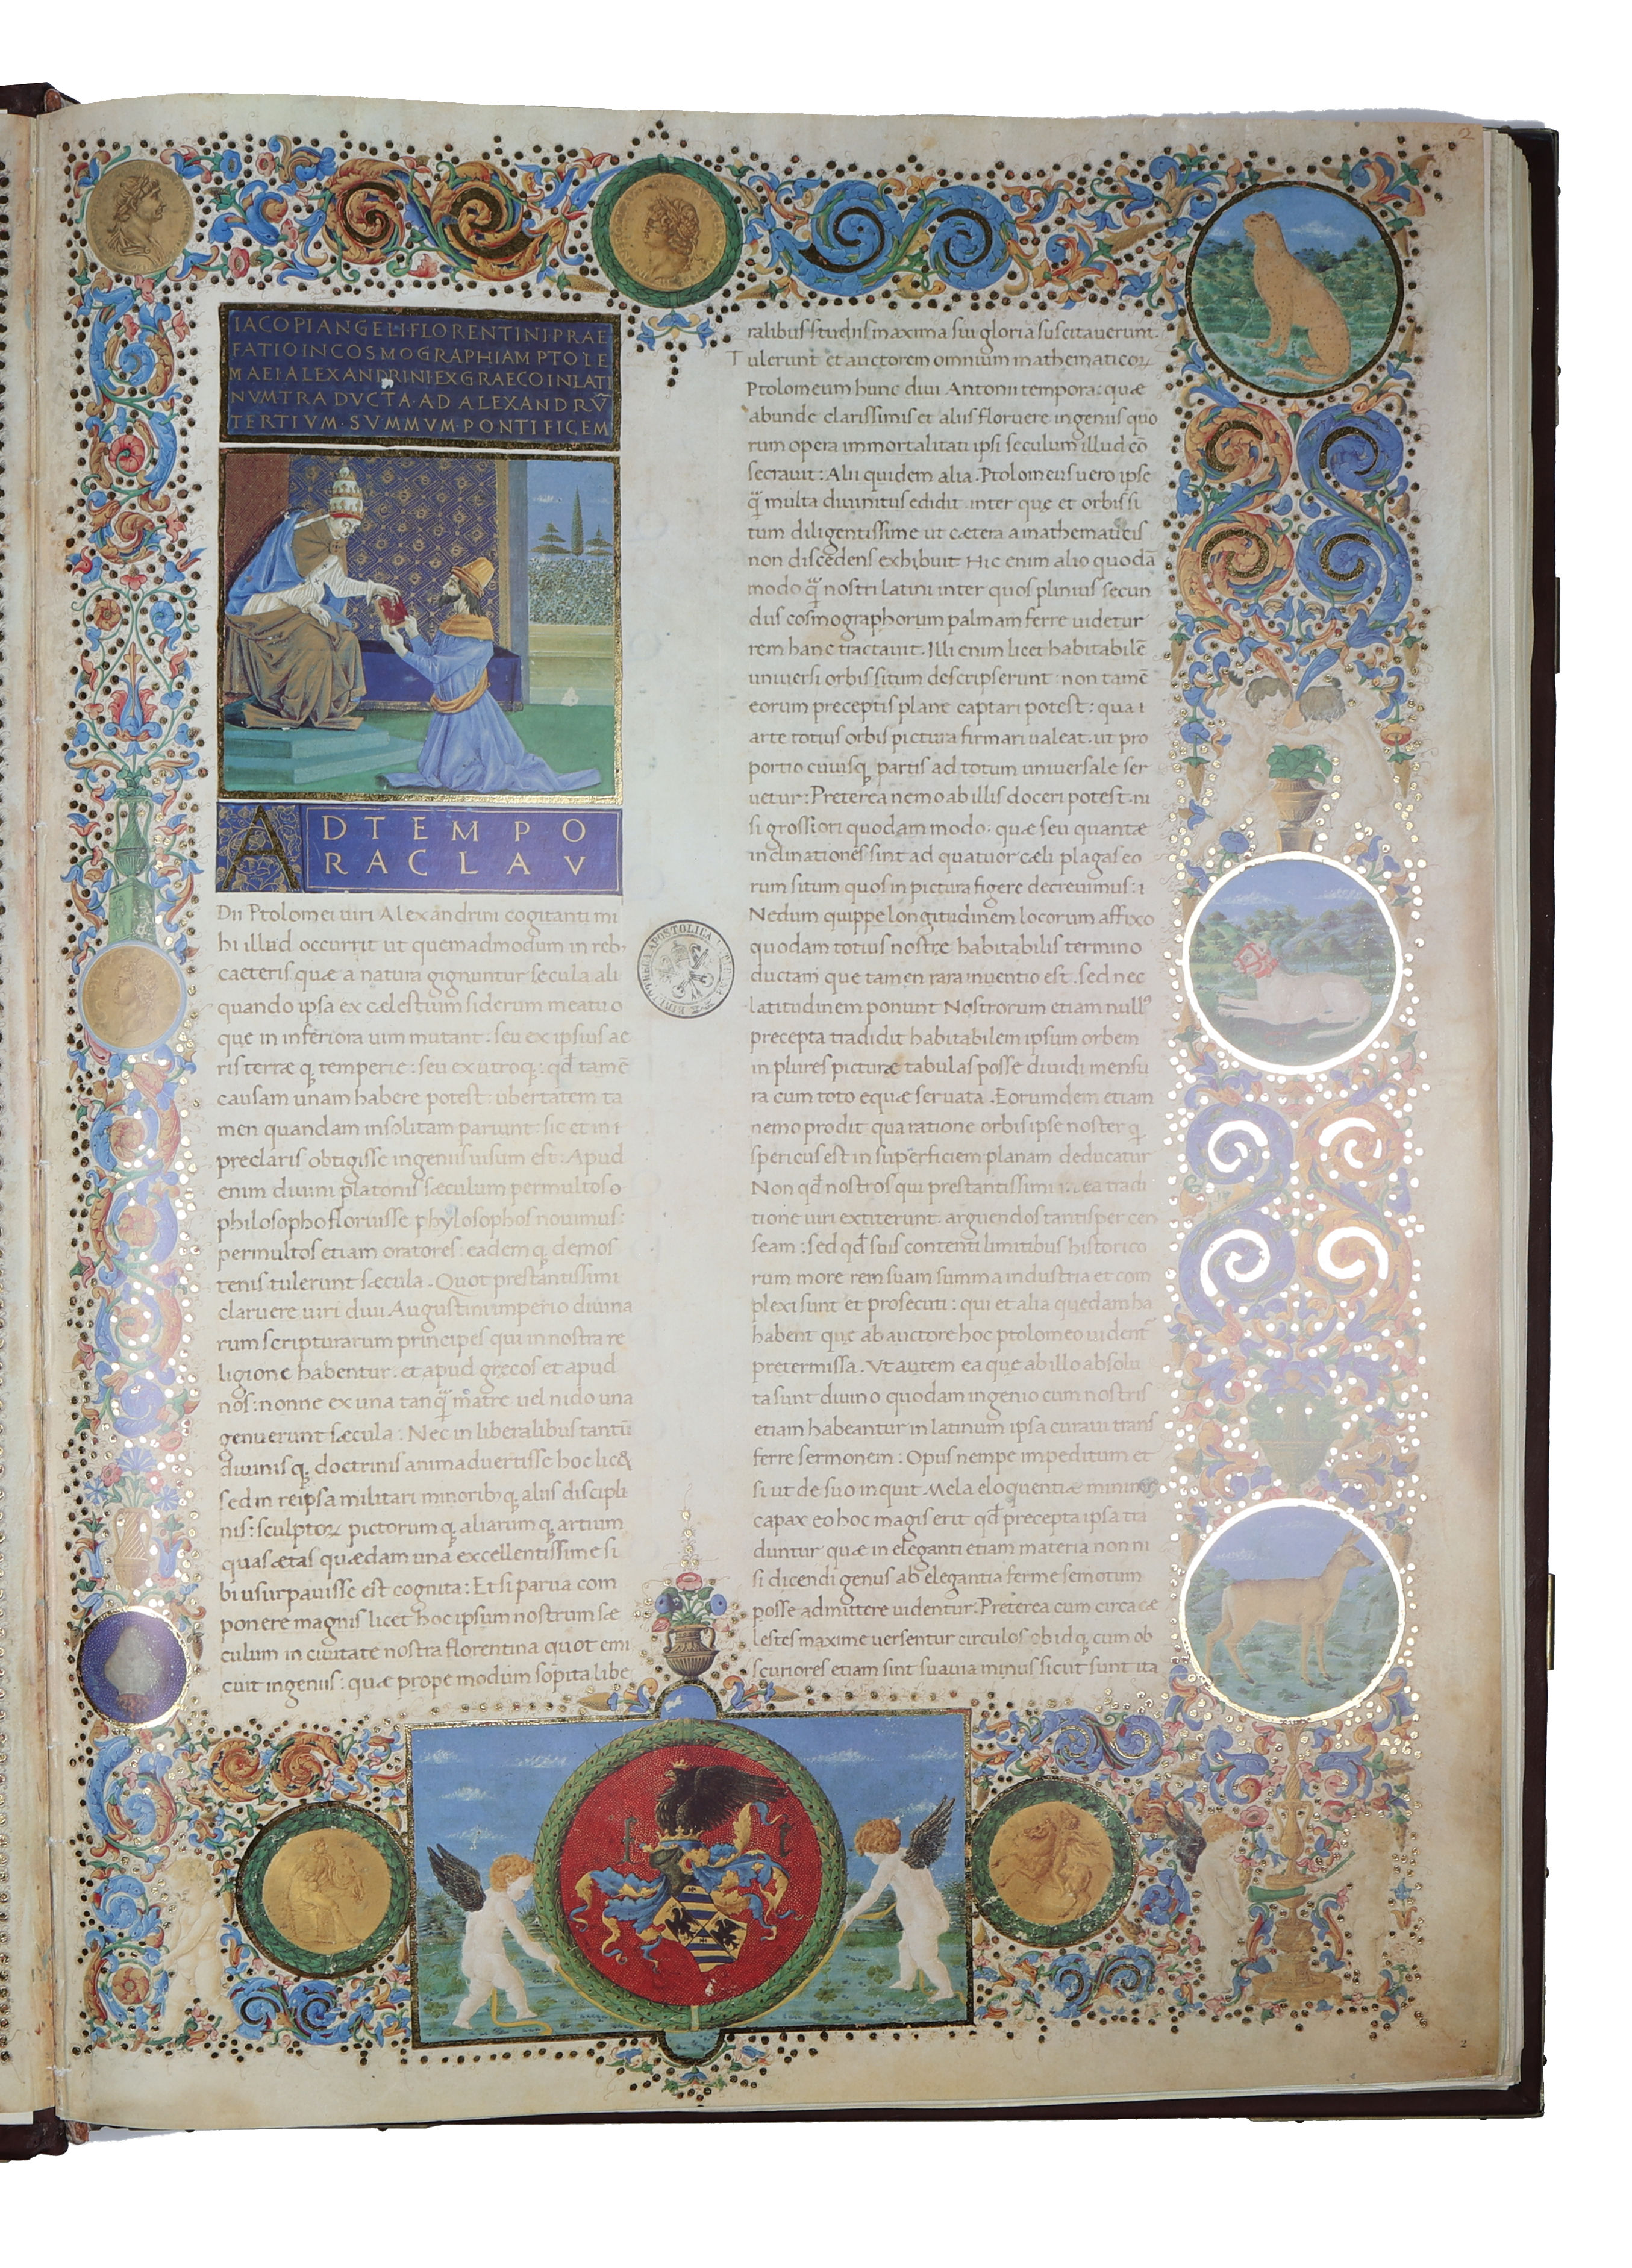 2
IACOPI ANGELI·FLORENTINI PRAE
FATIO IN COSMOGRAPHIAM PTOLE
MAEI ALEXANDRINI EX GRAECO IN LATI
NVM TRADVCTA·AD ALEXANDRV̄
TERTIVM·SVMMVM·PONTIFICEM
AD TEMPO
RA CLAV
Dii Ptolomei uiri Alexandrini cogitanti mi
hi illud occurrit ut quemadmodum in reb;
caeteris quæ a natura gignuntur secula ali
quando ipsa ex cælestium siderum meatu o
que in inferiora uim mutant: seu ex ipsius ae
ris terræ q; temperie: seu ex utroq;: qd tamē
causam unam habere potest: ubertatem ta
men quandam insolitam pariunt: sic et in i
preclaris obtigisse ingeniis uisum est: Apud
enim diuini platonis sæculum permultos o
philosopho floruisse phylosophos nouimus:
permultos etiam oratores: eadem q; demos
tenis tulerunt sæcula. Quot prestantissimi
claruere uiri diui Augustini imperio diuina
rum scripturarum principes qui in nostra re
ligione habentur: et apud grecos et apud
nos: nonne ex una tanq̃ matre uel nido una
genuerunt sæcula: Nec in liberalibus tantū
diuinis q; doctrinis animaduertisse hoc lic&
sed in re ipsa militari minorib; q; aliis discipli
nis: sculptoꝝ pictorum q; aliarum q; artium
quas ætas quædam una excellentissime si
bi usurpauisse est cognita: Et si parua com
ponere magnis licet hoc ipsum nostrum sæ
culum in ciuitate nostra florentina quot emi
cuit ingeniis: quæ prope modum sopita libe
ralibus studiis maxima sui gloria suscitauerunt.
Tulerunt et auctorem omnium mathematicoꝝ
Ptolomeum hunc diui Antonii tempora: quæ
abunde clarissimis et aliis floruere ingeniis quo
rum opera immortalitati ipsi seculum illud cō
secrauit: Alii quidem alia. Ptolomeus uero ipse
q̃ multa diuinitus edidit inter que et orbis si
tum diligentissime ut cætera a mathematicis
non discedens exhibuit Hic enim alio quodā
modo q̃ nostri latini inter quos plinius secun
dus cosmographorum palmam ferre uidetur
rem hanc tractauit. Illi enim licet habitabilē
uniuersi orbis situm descripserunt: non tamē
eorum preceptis plane captari potest: qua i
arte totius orbis pictura firmari ualeat. ut pro
portio cuiusq; partis ad totum uniuersale ser
uetur: Preterea nemo ab illis doceri potest. ni
si grossiori quodam modo: quæ seu quantæ
inclinationes sint ad quatuor cæli plagas eo
rum situm quos in pictura figere decreuimus: i
Nedum quippe longitudinem locorum affixo
quodam totius nostræ habitabilis termino
ductam que tamen rara inuentio est. sed nec
latitudinem ponunt Nostrorum etiam null⁹
precepta tradidit habitabilem ipsum orbem
in plures picturæ tabulas posse diuidi mensu
ra cum toto equæ seruata. Eorumdem etiam
nemo prodit qua ratione orbis ipse noster q;
spericus est in superficiem planam deducatur
Non qd nostros qui prestantissimi ea tradi
tione uiri extiterunt. arguendos tantisper cen
seam: sed qd suis contenti limitibus historico
rum more rem suam summa industria et com
plexi sunt et prosecuti: qui et alia quedam ha
habent que ab auctore hoc ptolomeo uident
pretermissa. Vt autem ea que ab illo absolu
ta sunt diuino quodam ingenio cum nostris
etiam habeantur in latinum ipsa curaui trans
ferre sermonem: Opus nempe impeditum et
si ut de suo inquit Mela eloquentiæ minime
capax eo hoc magis erit qd precepta ipsa tra
duntur quæ in eleganti etiam materia non ni
si dicendi genus ab elegantia ferme semotum
posse admittere uidentur. Preterea cum circa cæ
lestes maxime uersentur circulos ob id q; cum ob
scuriores etiam sint suauia minus sicut sunt ita
BIBLIOTHECA APOSTOLICA
f
2